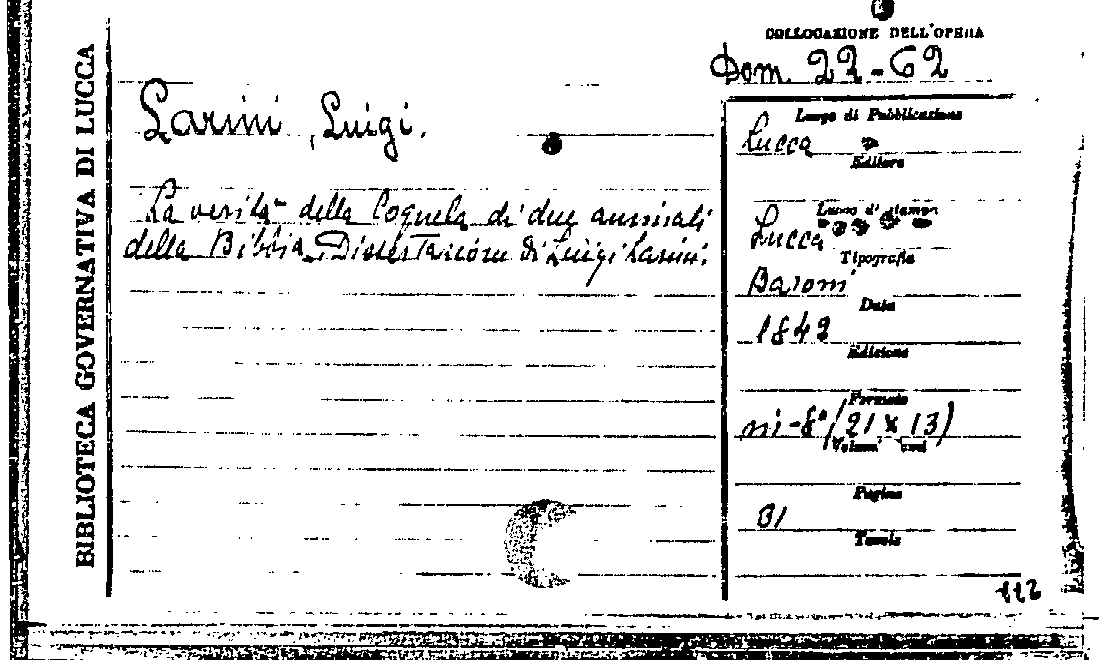 BIBLIOTECA GOVERNATIVA DI LUCCA
COLLOCAZIONE DELL'OPERA
Dom. 22-62
Larini, Luigi.
La verità della loquela di due animali
della Bibbia. Dissertazione di Luigi Larini.
Luogo di Pubblicazione
Lucca
Editore
Luogo di stampa
Lucca
Tipografia
Baroni
Data
1842
Edizione
Formato
in-8° (21 x 13)
Volumi
Pagine
31
Tavole